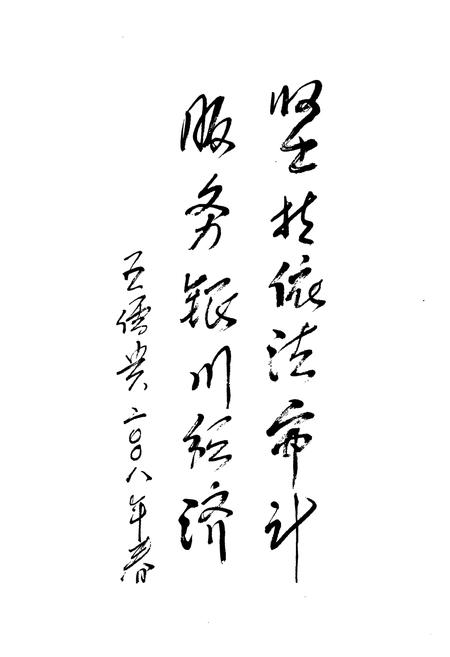 坚持依法审计
服务银川经济
王儒贵 二〇〇八年春